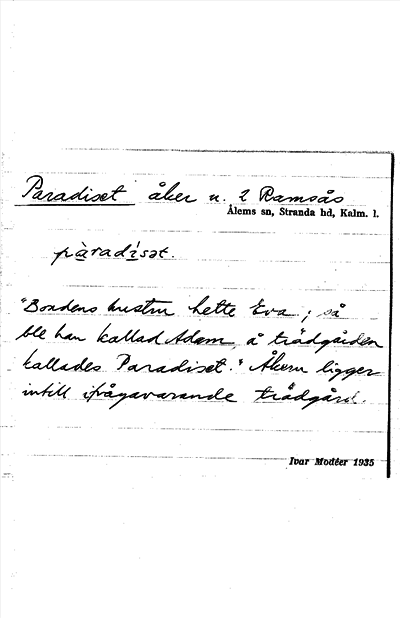 Paradiset åker n. 2 Ramsås
Ålems sn, Stranda hd, Kalm. l.
pàradìsət.
"Bondens hustru hette Eva; så
ble han kallad Adam å trädgården
kallades Paradiset." Åkern ligger
intill ifrågavarande trädgård.
Ivar Modéer 1935